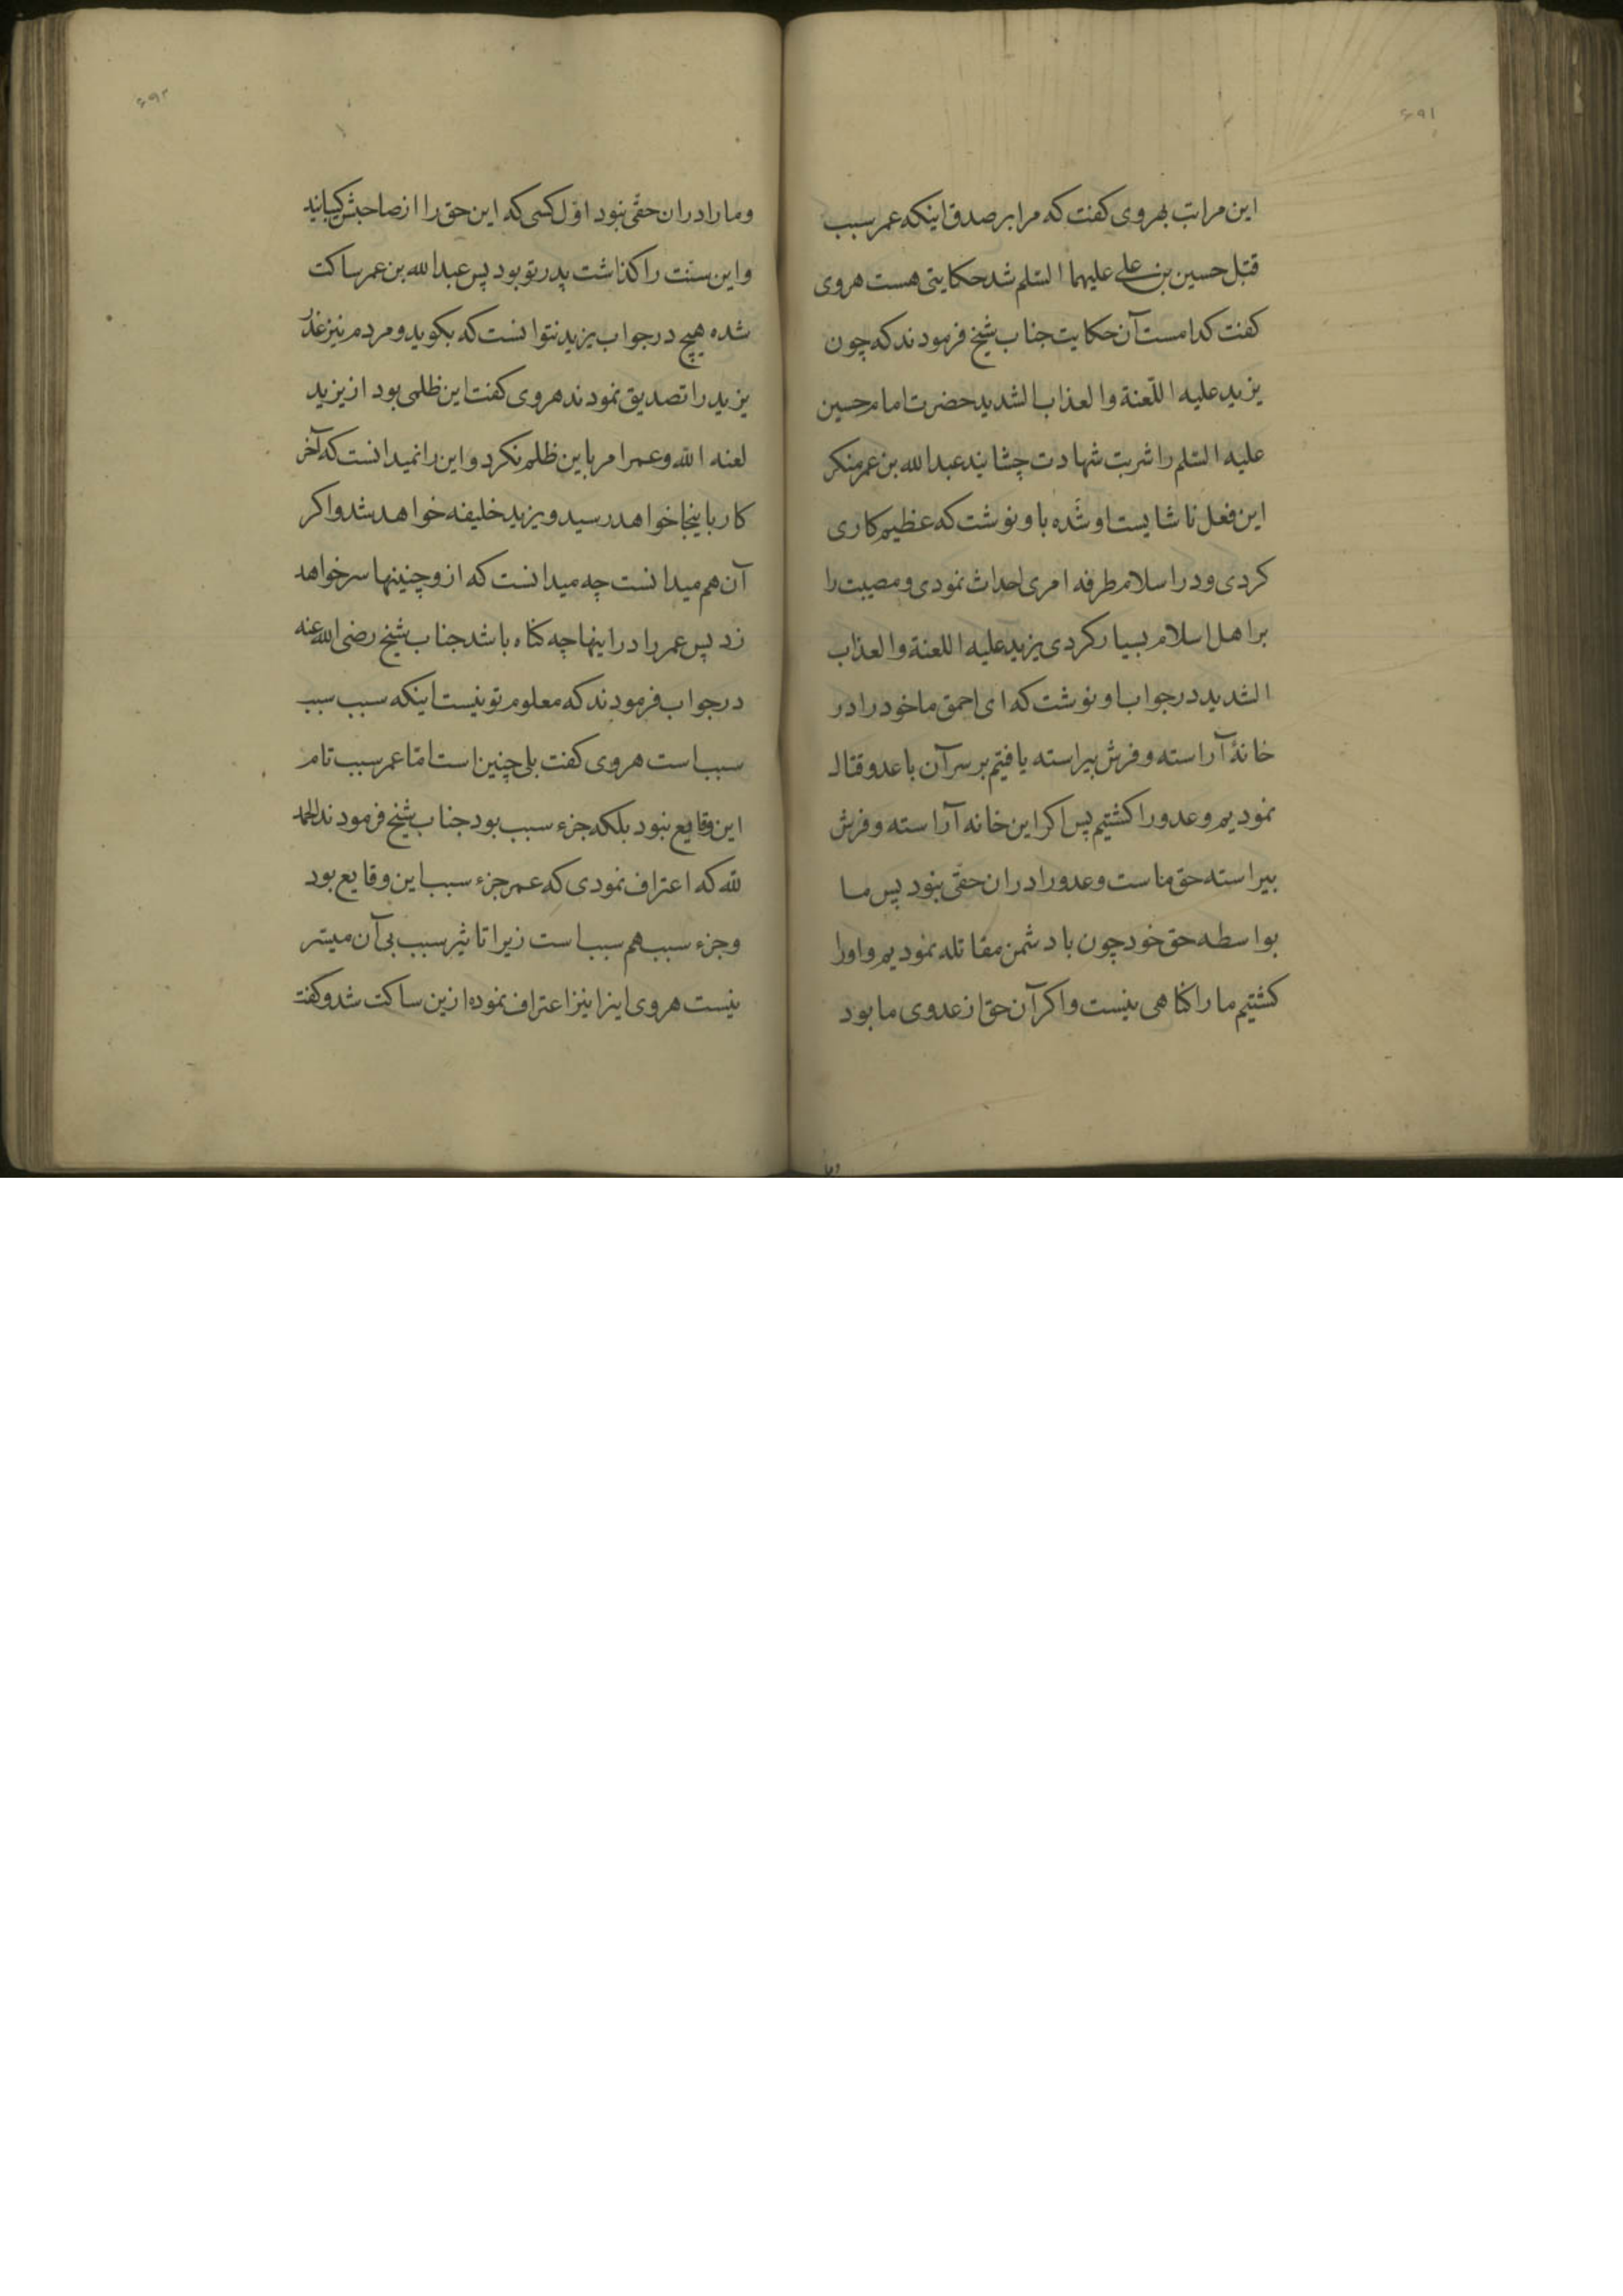 ۶۹۱
این مراتب بهروی کفت که مرا بر صدق اینکه عمر سبب
قتل حسین بن علی علیهما السلم شد حکایتی هست هروی
کفت کدامست آن حکایت جناب شیخ فرمودند که چون
یزید علیه اللّعنة والعذاب الشدید حضرت امام حسین
علیه السلم را شربت شهادت چشانید عبدالله بن عمر منکر
این فعل ناشایست او شده باو نوشت که عظیم کاری
کردی و در اسلام طرفه امری احداث نمودی و مصیبت را
بر اهل اسلام بسیار کردی یزید علیه اللعنة والعذاب
الشدید در جواب او نوشت که ای احمق ما خود را در
خانهٔ آراسته و فرش بیراسته یافتیم بر سر آن با عدو قتال
نمودیم و عدو را کشتیم پس اکر این خانه آراسته و فرش
بیراسته حق ماست و عدو را دران حقّی نبود پس ما
بواسطه حق خود چون با دشمن مقاتله نمودیم و او را
کشتیم ما را کناهی نیست و اکر آن حق از عدوی ما بود
۶۹۲
و ما را دران حقّی نبود اوّل کسی که این حق را از صاحبش
و این سنّت را کذاشت پدر تو بود پس عبدالله بن عمر ساکت
شده هیچ در جواب یزید نتوانست که بکوید و مردم نیز عذر
یزید را تصدیق نمودند هروی کفت این ظلمی بود از یزید
لعنه الله و عمر امر باین ظلم نکرد و این را نمیدانست که آخر
کار باینجا خواهد رسید و یزید خلیفه خواهد شد و اکر
آن هم میدانست چه میدانست که ازو چنینها سر خواهد
زد پس عمر را در اینها چه کناه باشد جناب شیخ رضی الله عنه
در جواب فرمودند که معلوم تو نیست اینکه سبب سبب
سبب است هروی کفت بلی چنین است امّا عمر سبب تام
این وقایع نبود بلکه جزء سبب بود جناب شیخ فرمودند الحمد
لله که اعتراف نمودی که عمر جزء سبب این وقایع بود
و جزء سبب هم سبب است زیرا تاثیر سبب بی آن میسّر
نیست هروی اینرا نیز اعتراف نموده ازین ساکت شد و کفت